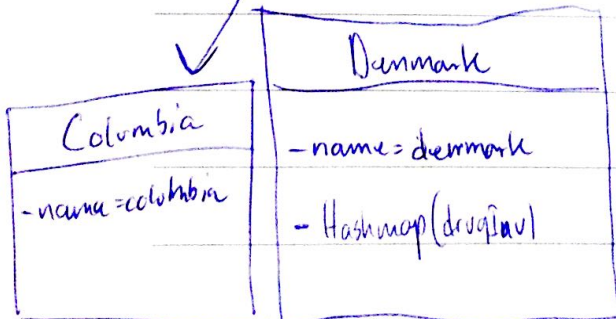 Columbia
-name=columbia
Danmark
-name=denmark
- Hashmap(drugInv)